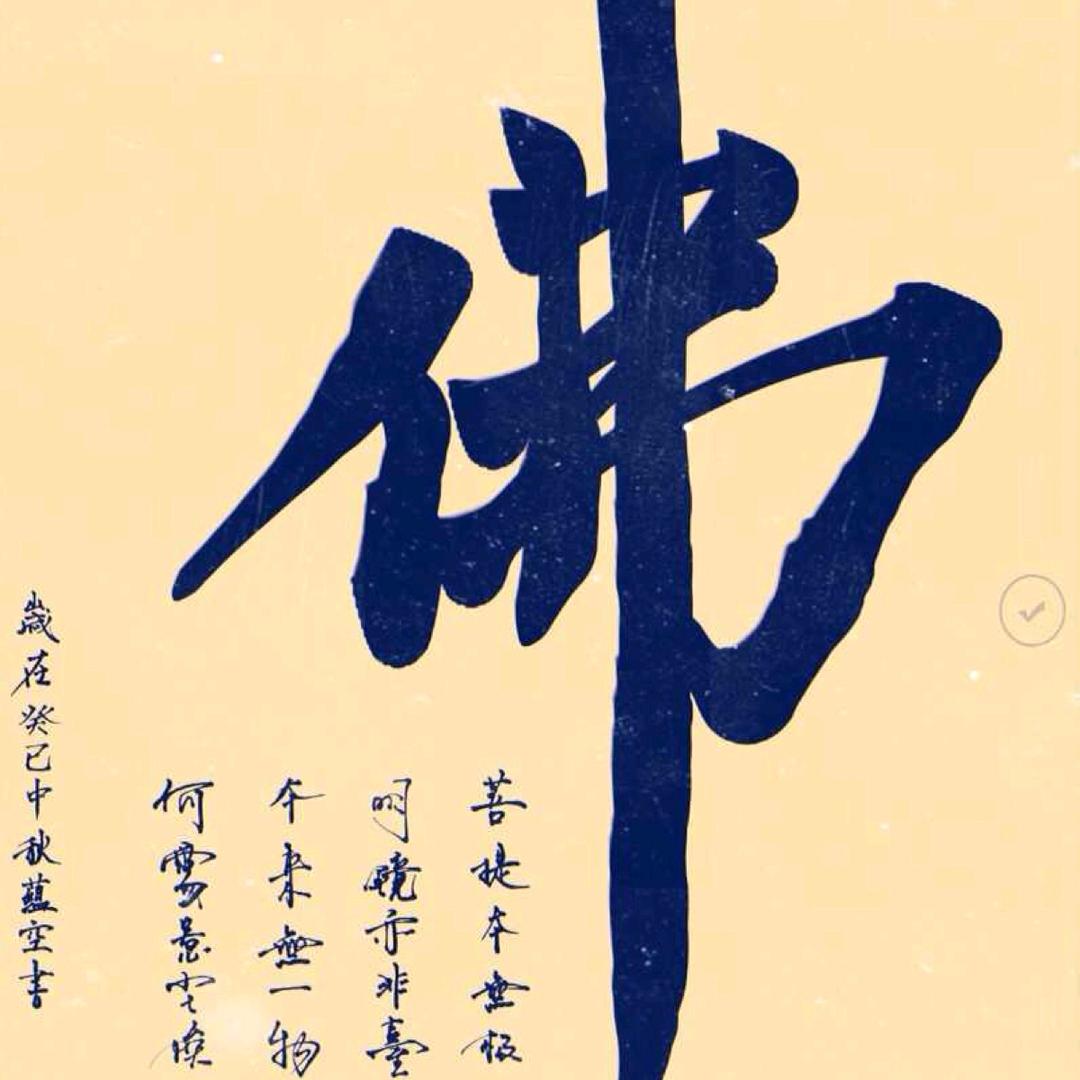 佛
菩提本無樹
明鏡亦非臺
本来無一物
何處惹塵埃
歲在癸巳中秋蘊空書